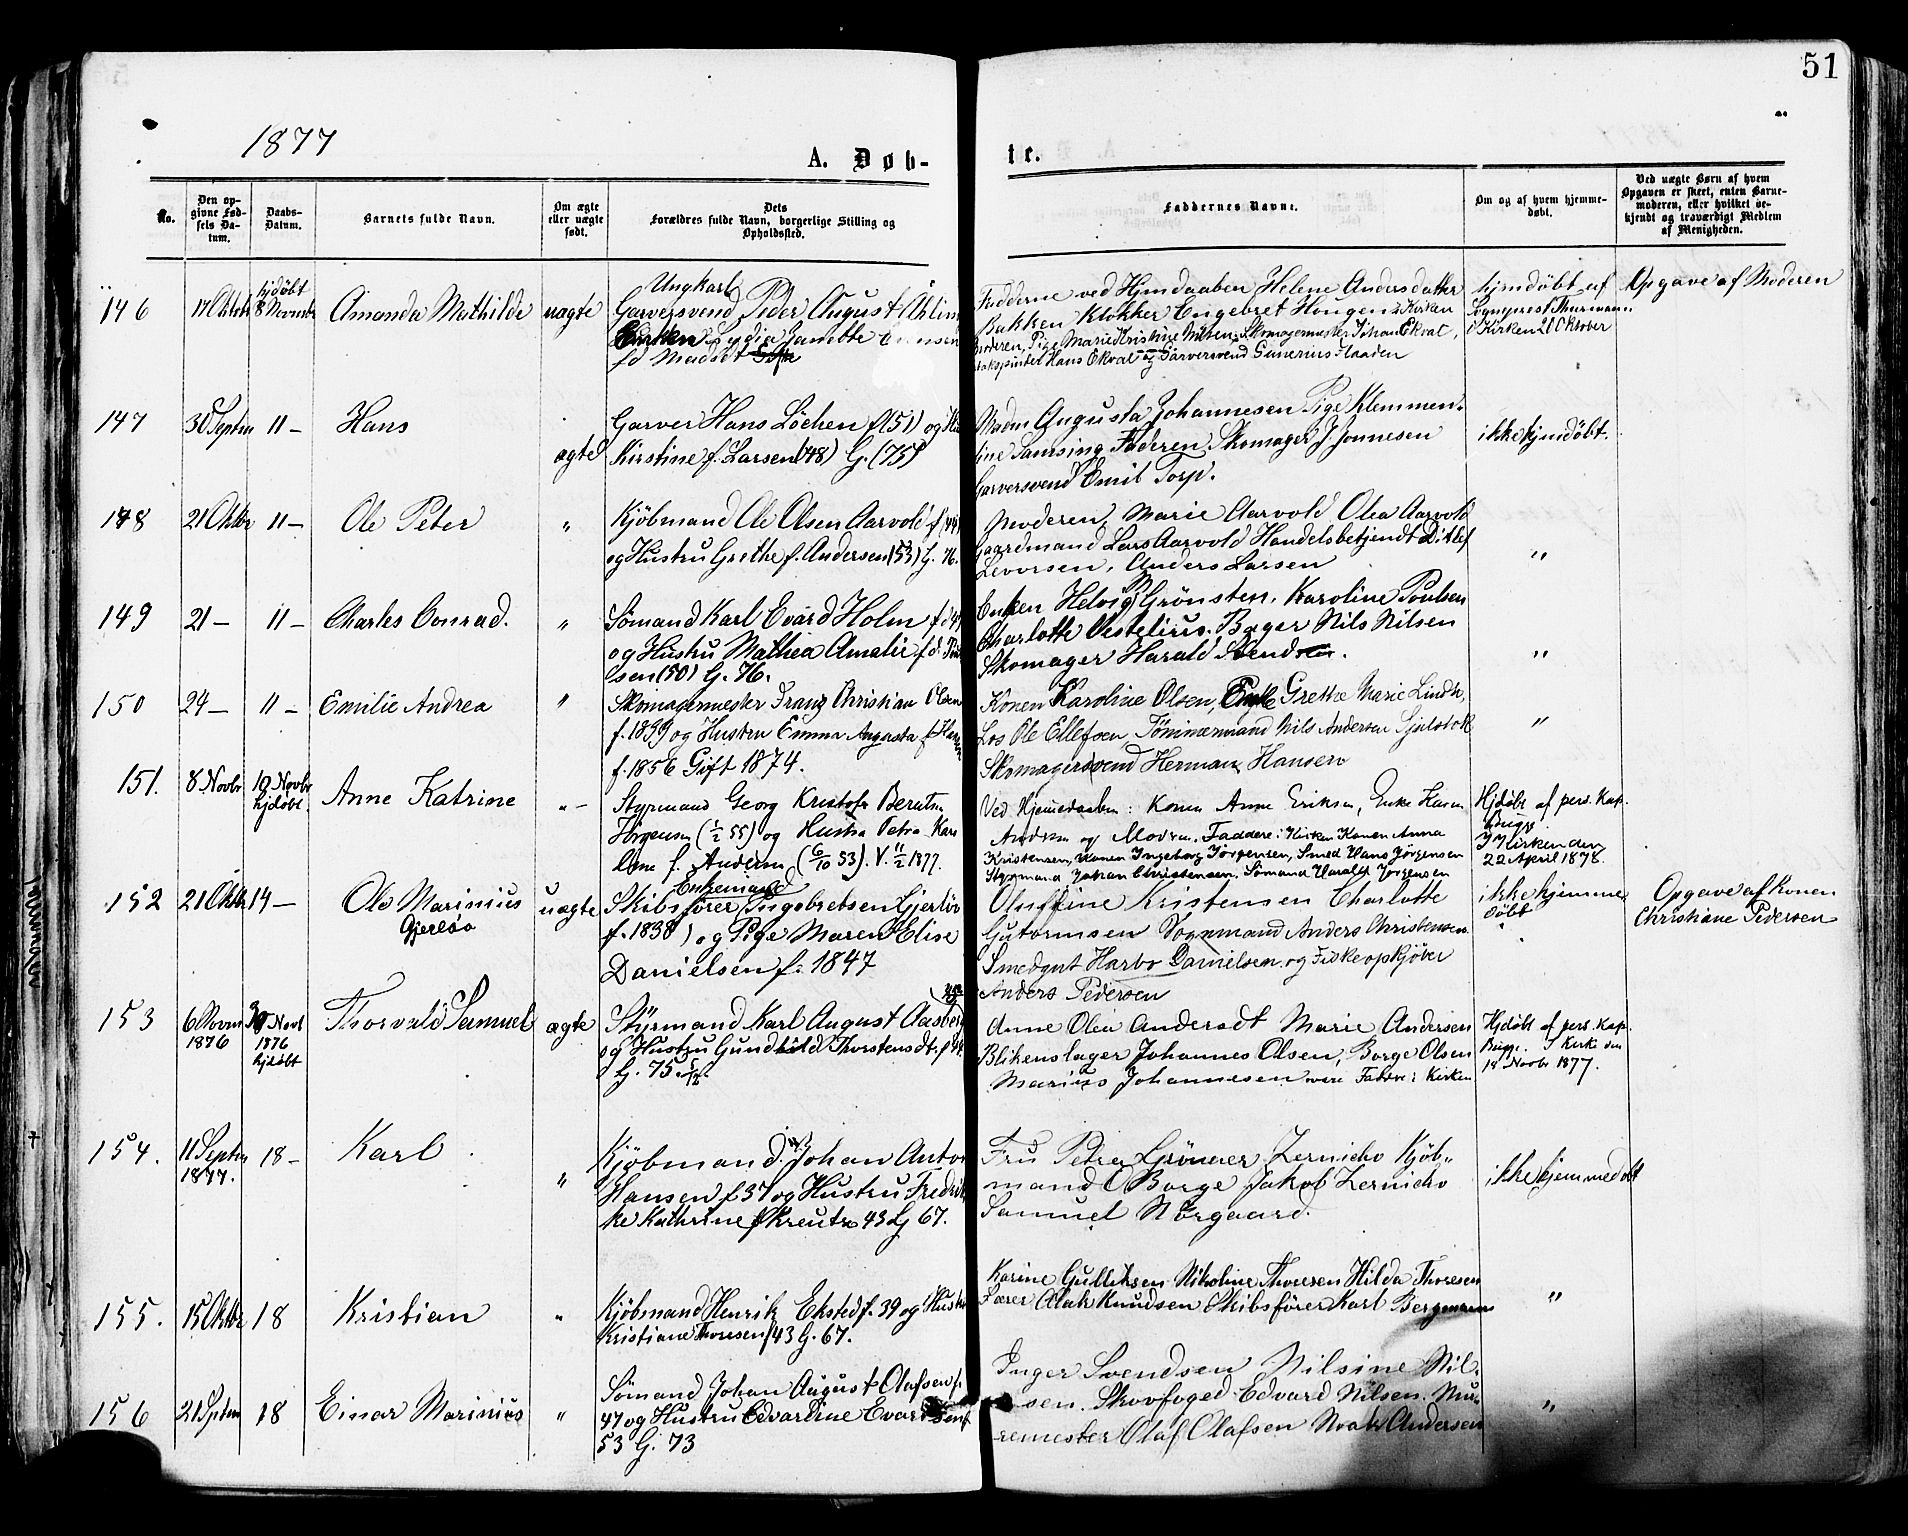 51
1877
A. Døb-
te.
No.
Den op-
givne Fød-
sels Da-
tum.
Daabs-
Datum.
Barnets fulde Navn.
Om ægte
eller uægte
født.
Dets
Forældres fulde Navn, borgerlige Stilling og
Opholdssted.
Faddernes Navne.
Om og af hvem hjemme-
døbt.
Ved uægte Børn af hvem
Opgaven er skeet, enten Barne-
moderen, eller hvilket be-
kjendt og troværdigt Medlem
af Menigheden.
146
17 Oktober
hjdøbt
8 Novembr
Amanda Mathilde
uægte
Ungkarl
Garversvend Peder August Ahlin
Lydia Janette
Fadderne ved Hjemdaaben Helene Andersdatter
Bakken Klokker Engebret Hougen i Kirken
Moderen, Pige Marie Kristine Nilsen, Skomagermester Johan Ekval,
Hans Ekval og Garversvend Gunerius Flaaden
hjmdøbt af
Sognprest Thurmann
i Kirken 21 Oktober
Opgave af Moderen
147
30 Septbr
11 —
Hans
ægte
Garver Hans Løchen f. (51) og
Kirstine f. Larsen (48) G. (75)
Madm Augusta Johannesen Pige Klemmen-
tine Laursing Faderen, Skomager J Jonnesen
Garversvend Emil Torp.
ikke hjmdøbt.
148
21 Oktbr
11 —
Ole Peter
"
Kjøbmand Ole Olsen Aarvold f.
og Hustru Grethe f. Andersen (53) G. 76.
Moderen, Marie Aarvold Olea Aarvold
Gaardmand Lars Aarvold Handelsbetjendt Ditlef
Levorsen, Anders Larsen
"
149
21 —
11 —
Charles Conrad.
"
Sømand Karl Evard Holm
og Hustru Mathea Amalie fd.
sen (50) G. 76.
Enken Helvig Grønsten, Karoline Poulsen
Charlotte Vestelius. Bager Nils Nilsen
Skomager Harald Svendsen.
"
150
24 —
11 —
Emilie Andrea
"
Skomagermester Franz Christian Olsen
f. 1839 og Hustru Emma Augusta f. Hansen
f. 1856 Gift 1874.
Konen Karoline Olsen, Enke Grethe Marie Lindh,
Los Ole Ellefsen Tømmermand Nils Andersen
Skomagersvend Herman Hansen
"
151.
8 Novbr
10 Novbr
hjdøbt
Anne Katrine
" —
Styrmand Georg Kristofr Berntsn
Jørgensen (1/2 55) og Hustru Petra Karo
line f. Andersen (6/10 53). V. 11/2 1877.
Ved Hjemedaaben: Konen Anne Eriksen, Enke Karen
Andersen og Modren. Faddere i Kirken Konen Anna
Kristensen, Konen Ingeborg Jørgensen, Smed Hans Jørgensen
Styrmand Johan Christensen, Sømand Harald Jørgensen
Hjdøbt af pers. Kap.
Bugge
I Kirken den
22 April 1878.
152
21 Oktbr
14 —
Ole Marinius
Gjerløv
uægte
Enkemand
Skibsfører Ingebretsen Gjerløv
f. 1838) og Pige Maren Elise
Danielsen f. 1847
Olufine Kristensen Charlotte
Gutormsen Vognmand Anders Christensen
Smedgut Harbo Danielsen og Fiskeopkjøber
Anders Pedersen
ikke hjemme
døbt
Opgave af Konen
Christiane Pedersen
153
6 Novbr
1876
Novbr
1876
hjdøbt
Thorvald Samuel
ægte
Styrmand Karl August Aasberg
og Hustru Gundhild Thorstensdt. f.
G. 75
Anne Olea Andersdt Marie Andersen
Blikenslager Johannes Olsen, Borge Olsen
Marius Johannesen vare Faddre i Kirken
Hjdøbt af pers. Kap.
Bugge. I Kirke den
18 Novbr 1877.
154.
11 Septbr
1877.
18 —
Karl
"
Kjøbmand Johan Anton
Hansen f. 37 og Hustru Fredrik
ke Kathrine f. Kreutz 43 G 67.
Fru Petra Grønner Zernicho Kjøb-
mand O Borge Jakob Zernicho
Samuel Nørgaard.
ikke hjemmedøbt
155.
15 Oktbr
18
Kristian
"
Kjøbmand Henrik Eksted f. 39 og Hustru
Kristiane Thoresen 43 G. 67.
Karine Gulliksen Nikoline Thoresen Hilda Thoresen
Olak Knudsen Skibsfører Karl Bergmann
"
156
21 Septbr
18
Einar Marinius
"
Sømand Johan August Olafsen f.
47 og Hustru Edvardine
53 G. 73
Inger Svendsen Nilsine Nil-
sen. Skovfoged Edvard Nilsen. Mur-
remester Olaf Olafsen Noak Andersen
"